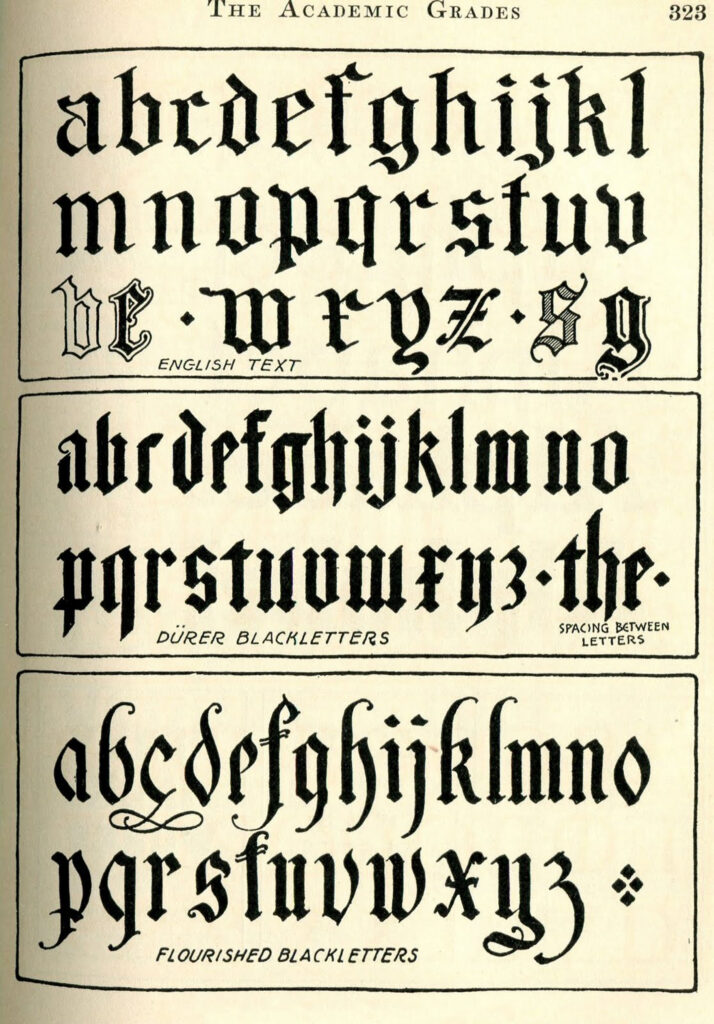 The Academic Grades 323
abcdefghijkl
mnopqrstuv
be · wxyz · Sg
ENGLISH TEXT
abcdefghijklmno
pqrstuvwxyz · the ·
DÜRER BLACKLETTERS
SPACING BETWEEN
LETTERS
abcdefghijklmno
pqrstuvwxyz
FLOURISHED BLACKLETTERS